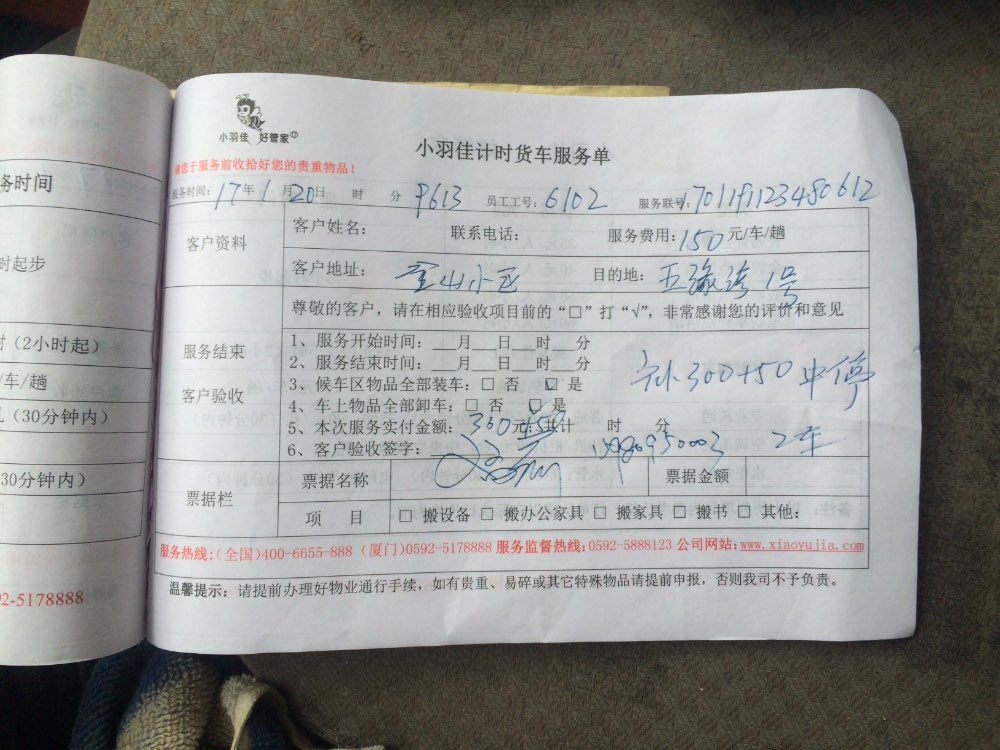 务时间
时起步
时(2小时起)
/车/趟
(30分钟内)
30分钟内)
92-5178888
小羽佳 好管家
小羽佳计时货车服务单
请您于服务前收拾好您的贵重物品!
服务时间: 17年 1月 20日 时 分 P613 员工工号: 6102 服务联号: 701191123480612
客户资料
客户姓名: 联系电话: 服务费用: 150元/车/趟
客户地址: 金山小区 目的地: 五缘湾1号
服务结束
客户验收
尊敬的客户,请在相应验收项目前的“□”打“√”,非常感谢您的评价和意见
1、服务开始时间:___月___日___时___分
2、服务结束时间:___月___日___时___分
3、候车区物品全部装车:□ 否 □ 是
4、车上物品全部卸车:□ 否 □ 是
300+50 中停
5、本次服务实付金额: 300元+50 共计 时 分
6、客户验收签字: 2车
票据栏
票据名称 票据金额
项 目 □ 搬设备 □ 搬办公家具 □ 搬家具 □ 搬书 □ 其他:
服务热线:(全国)400-6655-888 (厦门)0592-5178888 服务监督热线:0592-5888123 公司网站:www.xiaoyujia.com
温馨提示:请提前办理好物业通行手续,如有贵重、易碎或其它特殊物品请提前申报,否则我司不予负责。